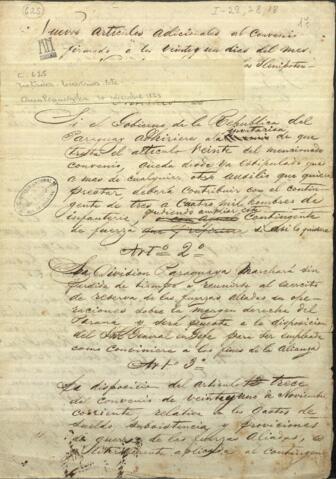 (625)
I-28, 28, 18
Nueve Articulos Adicionales al Convenio
firmado a los veinte y un dias del mes
los Plenipoten-
C. 625
Si el Gobierno de la Republica del
Paraguay adhiriera a la invitacion de que
trata el articulo veinte del mencionado
Convenio, queda desde ya estipulado que
a mas de cualquier otro auxilio que quiera
prestar, deberá contribuir con el contin-
gente de tres a cuatro mil hombres de
infanteria, pudiendo ampliar este Contingente
de fuerza si asi lo quiere
Arto 2º
La Division Paraguaya marchará sin
perdida de tiempo a reunirse al ejercito
de reserva de las fuerzas aliadas en ope-
raciones sobre la margen derecha del
Paraná y será puesta a la disposicion
del Gral en Gefe para ser empleada
como conviniere a los fines de la Alianza
Art 3º
La disposicion del articulo trece
del convenio de veinte y uno de Noviembre
corriente, relativa a los gastos de
sueldo subsistencia y provisiones
de guerra de las fuerzas Aliadas, es
aplicable al contingente